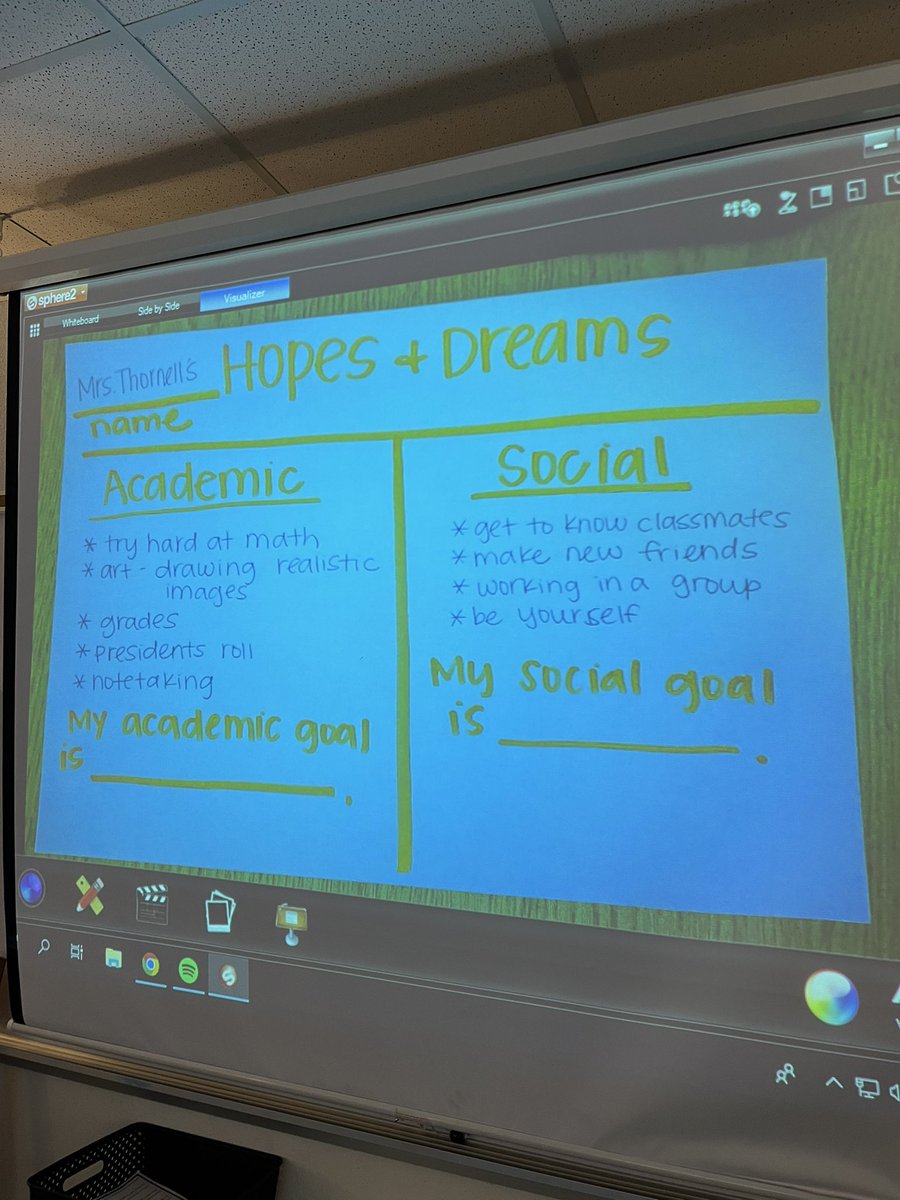 sphere2
Whiteboard
Side by Side
Visualizer
Mrs. Thornell's Hopes + Dreams
name
Academic
* try hard at math
* art - drawing realistic
images
* grades
* presidents roll
* notetaking
My academic goal
is
.
Social
* get to know classmates
* make new friends
* working in a group
* be yourself
My social goal
is
.